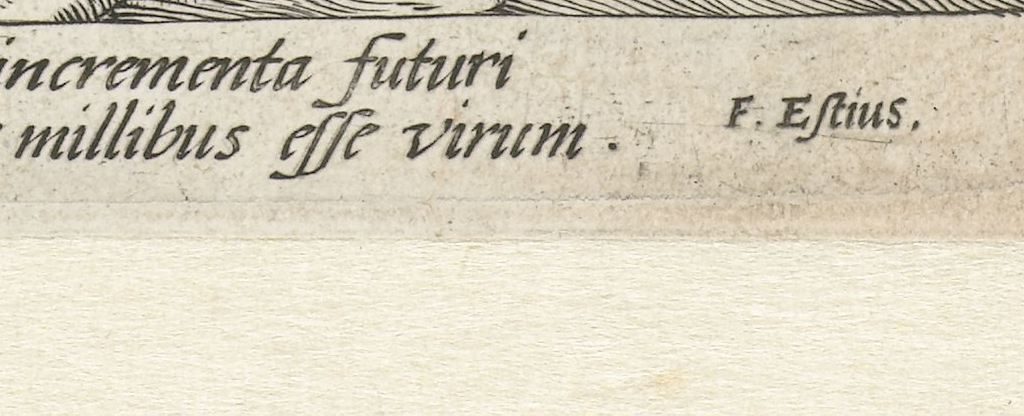 incrementa futuri
millibus eſſe virum.
F. Eſtius.